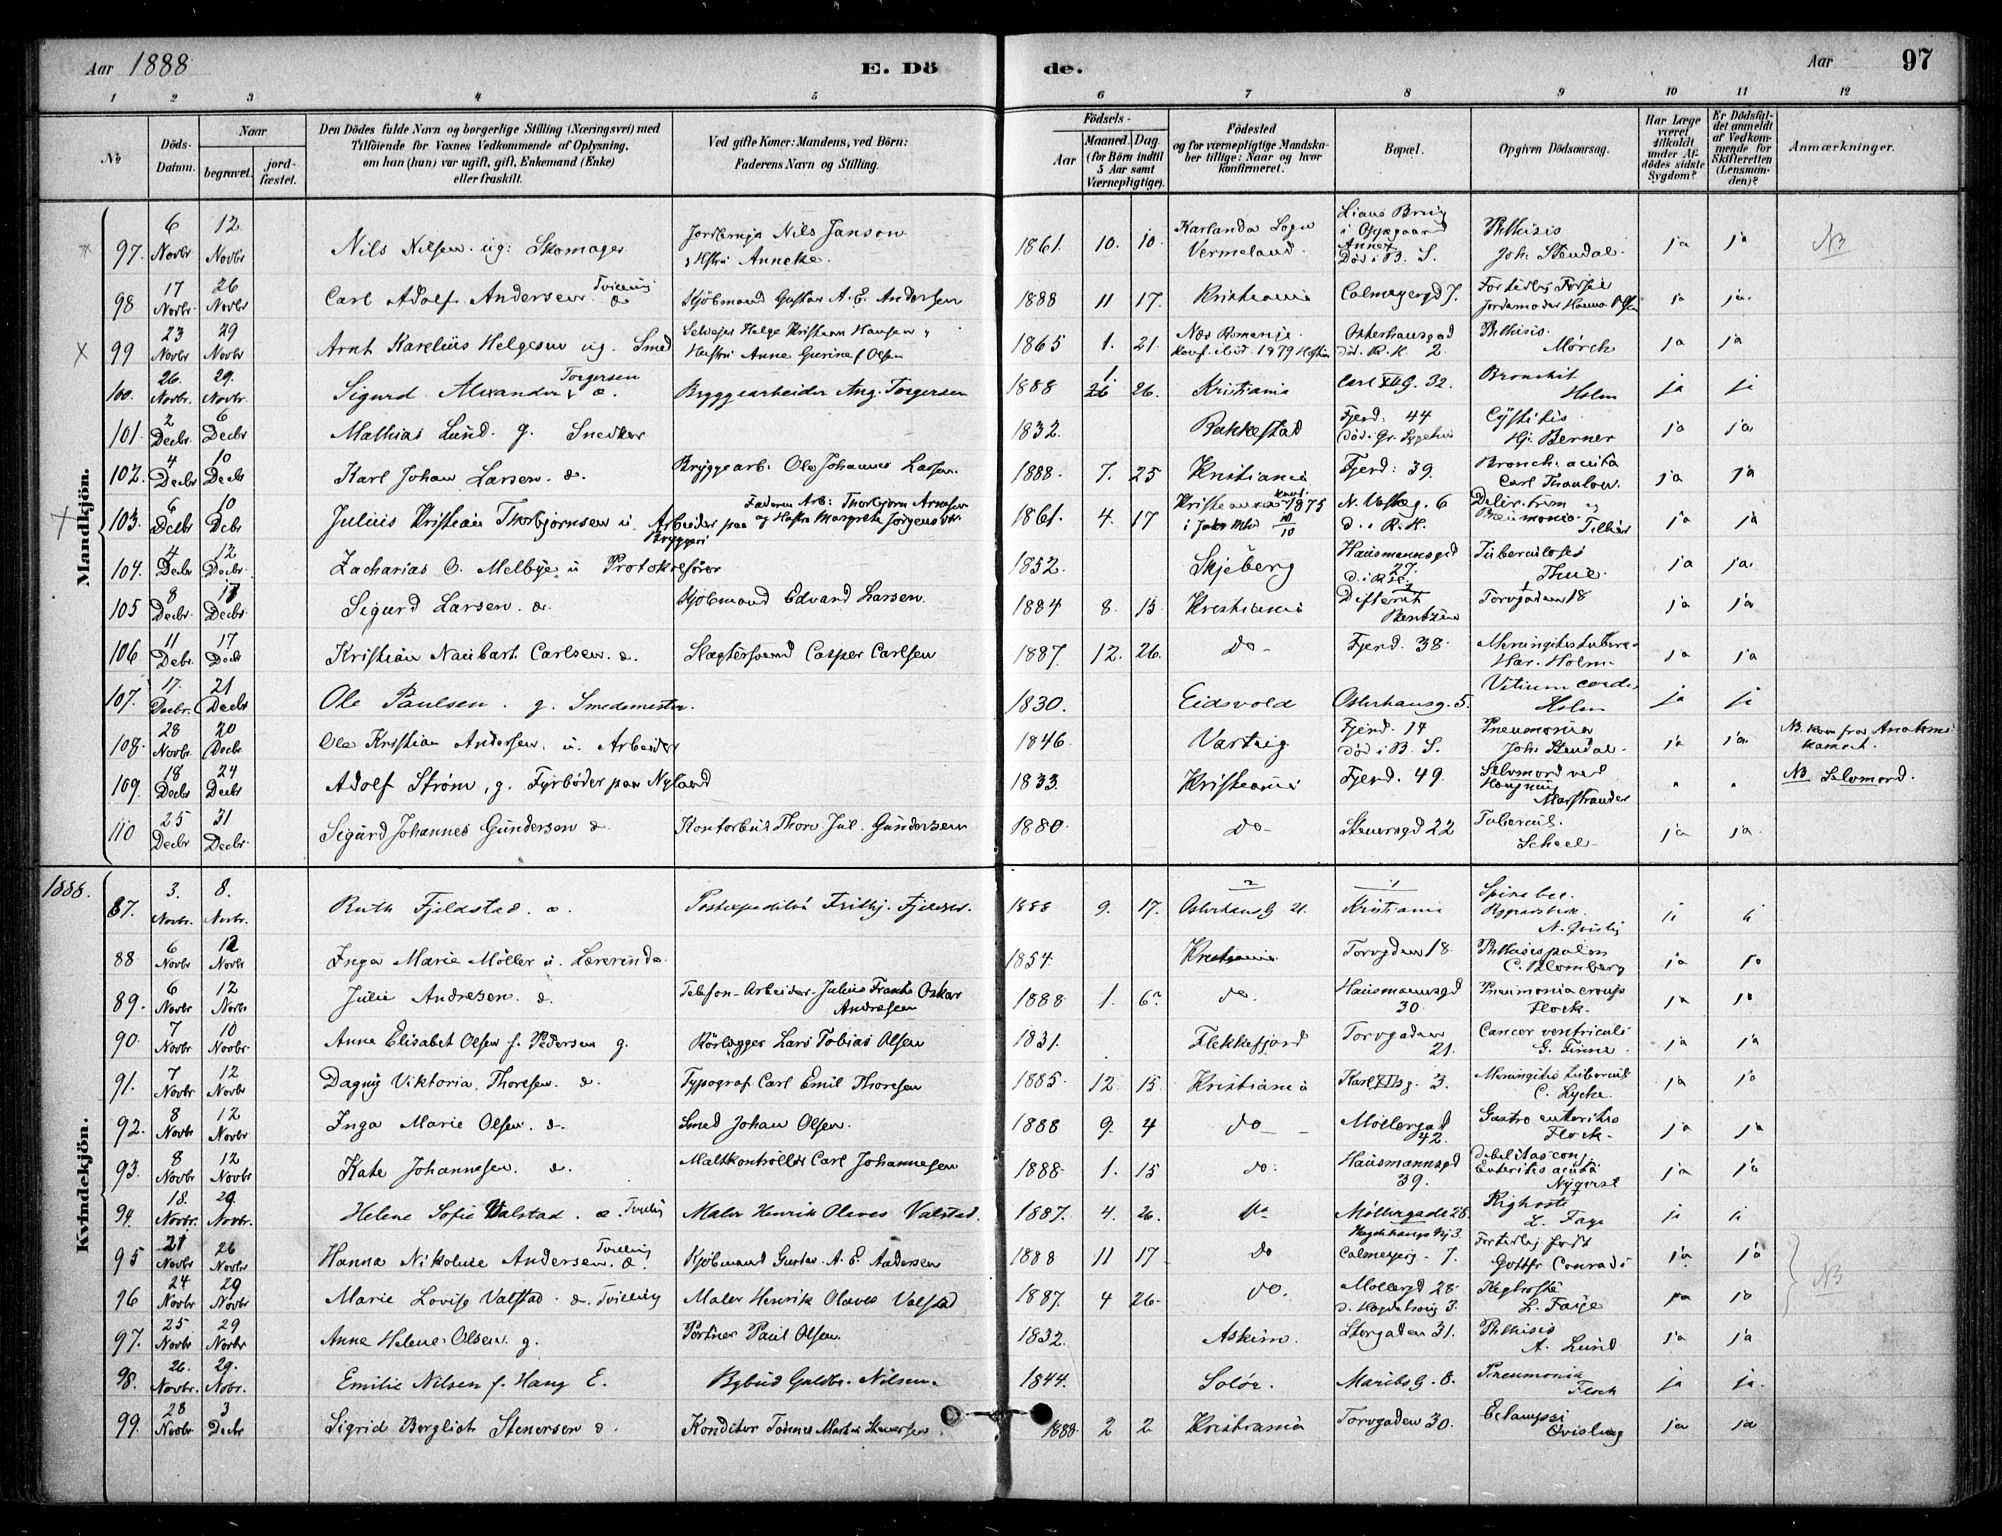 Aar 1888 E. Dö de. Aar 97
1 2 3 4 5 6 7 8 9 10 11 12
No
Döds-Datum.
Naar
begravet. jordfæstet.
Den Dödes fulde Navn og borgerlige Stilling (Næringsvei) med Tilföiende for Voxnes Vedkommende af Oplysning, om han (hun) var ugift, gift, Enkemand (Enke) eller fraskilt.
Ved gifte Koner: Mandens, ved Börn: Faderens Navn og Stilling.
Födsels-
Aar Maaned. Dag.
(for Börn indtil 5 Aar samt Værnepligtige).
Födested og for værnepligtige Mandskaber tillige: Naar og hvor konfirmeret.
Bopæl.
Opgiven Dödsaarsag.
Har Læge været tilkaldt under Afdödes sidste Sygdom?
Er Dödsfaldet anmeldt af Vedkommende for Skifteretten (Lensmanden)?
Anmærkninger.
Mandkjön.
97. 6 Novbr 12 Novbr Nils Nilsen ug: Skomager Nils Janson Hstru Anneke. 1861. 10. 10. Karlanda Sogn Vermeland. Död i B. S. Phthisis Joh. Stendal ja ja NB
98 17 Novbr 26 Novbr Carl Adolf Andersen Tvilling Kjöbmand Gustav A. E. Andersen 1888 11 17. Kristiania Calmeyergd 7. For tidlig Födsel Jordemoder Hanna Olsen ja ja
99 23 Novbr 29 Novbr Arnt Karelius Helgesen ug. Smed Selveier Helge Kristian Hansen Hustru Anne Gurine f. Olsen 1865 1. 21. Næs Romerige Osterhausgad 2 Phthisis Mörch ja ja
100. 26. Novbr. 29. Novbr. Sigurd Alexander Torgersen Bryggearbeider Aug. Torgersen 1888 1 26. Kristiania Carl XII G. 32. Bronchit Holm ja ja
101. 2 Decbr 6 Decbr Mathias Lund. g. Snedker 1832. Bakkestad Fjerd: 44 Död i Gr. Sygehus Cystitis Hj. Berner ja ja
102. 4 Decbr 10 Decbr Karl Johan Larsen d. Bryggearb. Ole Johannes Larsen. 1888 7. 25 Kristiania Fjerd: 39. Bronch. acuta Carl Thaulow ja ja
103. 6 Decbr 10 Debr Julius Kristian Thorbjörnsen u. Arbeider paa Bryggeri Faderen Arb: Thorbjörn Arnesen og Hstru Margrete Jörgensdtr 1861. 4. 17 Kristiania konf. 1875 i Jakob 10/10 N. Vaskeg. 6 d. i R.H. Delir. trem og Pneumonia. ja ja
104. 4 Decbr 12 Decbr. Zacharias O. Melbye u Protokolförer 1852. Skjeberg Hausmannsgd 27. Tuberculoses Thue. ja ja
105 8 Decbr 17 Decbr Sigurd Larsen. d. Kjöbmand Edvard Larsen 1884 8. 13. Kristiania Difterit Bentzen Torvgaden 18 ja ja
106 11 Debr. 17 Decbr Kristian Naubart Carlsen. d. Slagtersvend Casper Carlsen 1887. 12. 26. do Fjerd. 38. Meningitis tuberc. Har. Holm ja ja
107. 17. Decbr. 21 Decbr Ole Paulsen. g. Smedemester. 1830. Eidsvold Osterhausg. 5. Vitium cordis Holm ja ja
108. 28 Novbr. 20 Decbr Ole Kristian Andersen. u. Arbeider 1846. Varteig Fjerd. 14 Död i B. S. Pneumonia Joh. Stendal ja ja NB kom fra Anatomikammet.
109. 18 Decbr 24 Decbr Adolf Ström, g. Fyrböder paa Nyland 1833. Kristiania Fjerd. 49. Selvmord ved Hængning Marstrander " " NB Selvmord.
110 25 Decbr 31 Decbr. Sigurd Johannes Gundersen d. Kontorbud Thorv. Jul. Gundersen 1880. do Stenersgd 22 Tubercul. Scheel ja ja
1888.
Kvindekjön.
87. 3. Novbr. 8. Novbr. Ruth Fjeldstad. d. Postexpeditör Frithj. Fjeldst. 1888 9. 17. Osterhaus G 21. Kristiania Spina bif. Rygmarvsbrok N. Qvisling ja ja
88. 6 Novbr 12 Novbr Inga Marie Möller u. Lærerinde 1854. Kristiania Torvgaden 18 Phthisis pulm C. Blomberg ja ja
89. 6 Novbr 12 Novbr. Julie Andresen. d. Telefon-Arbeider Julius Oskar Andresen 1888 1. 6. do. Hausmannsgd 30. Pneumonia croup Flock ja ja
90. 7 Novbr 10 Novbr Anna Elisabet Olsen f. Pedersen g. Rörlægger Lars Tobias Olsen 1831. Flekkefjord Torvgaden 21. Cancer ventriculi G. Finne ja ja
91. 7 Novbr 12 Novbr Dagny Viktoria Thoresen. d. Typograf Carl Emil Thoresen 1885. 12 15 Kristiania Karl XIIsg. 3. Meningitis tubercul C. Lyche. ja ja
92. 8 Novbr 12 Novbr Inga Marie Olsen. d. Smed Johan Olsen. 1888 9 4 do Möllergad 42. Gastro enteritis Flock ja ja
93. 8 Novbr 12 Novbr Kate Johannesen. d. Maltkontrollör Carl Johannesen 1888 1. 15 do. Hausmannsgd 39. Debilitas con. Enteritis acuta Nyqvist ja ja
94. 18. Novbr. 29. Novbr. Helene Sofie Valstad. d. Tvilling Maler Henrik Olaves Valstad. 1887. 4. 26. do Möllergade 28. Kighoste L. Faye ja ja
95 21 Novbr 26 Novbr Hanna Nikoline Andersen. d. Tvilling Kjöbmand Gustav A. E. Andersen 1888 11 17 do Calmeyerg. 7. For tidlig föds Gottfr. Conradi ja ja
96 24 Novbr 29 Novbr Marie Lovise Valstad d. Tvilling Maler Henrik Olaves Valstad 1887. 4 26. do. Möllergd 28. Kighoste L. Faye ja ja NB
97. 25 Novbr 29 Novbr Anne Helene Olsen g. Portner Paul Olsen. 1832. Askim. Storgaden 31. Phthisis A. Lund ja ja
98. 26. Novbr. 29. Nobr. Emilie Nilsen f. Haug E. Bybud Guldbr. Nilsen. 1844. Solör. Maribs G. 8. Pneumonia Flock ja ja
99. 28 Novbr 3 Decbr Sigrid Borglich Stenersen d. Konditor Tönnes Martin Stenersen 1888. 2 2 Kristiania Torvgaden 30. Eclampsi Qvisling ja ja